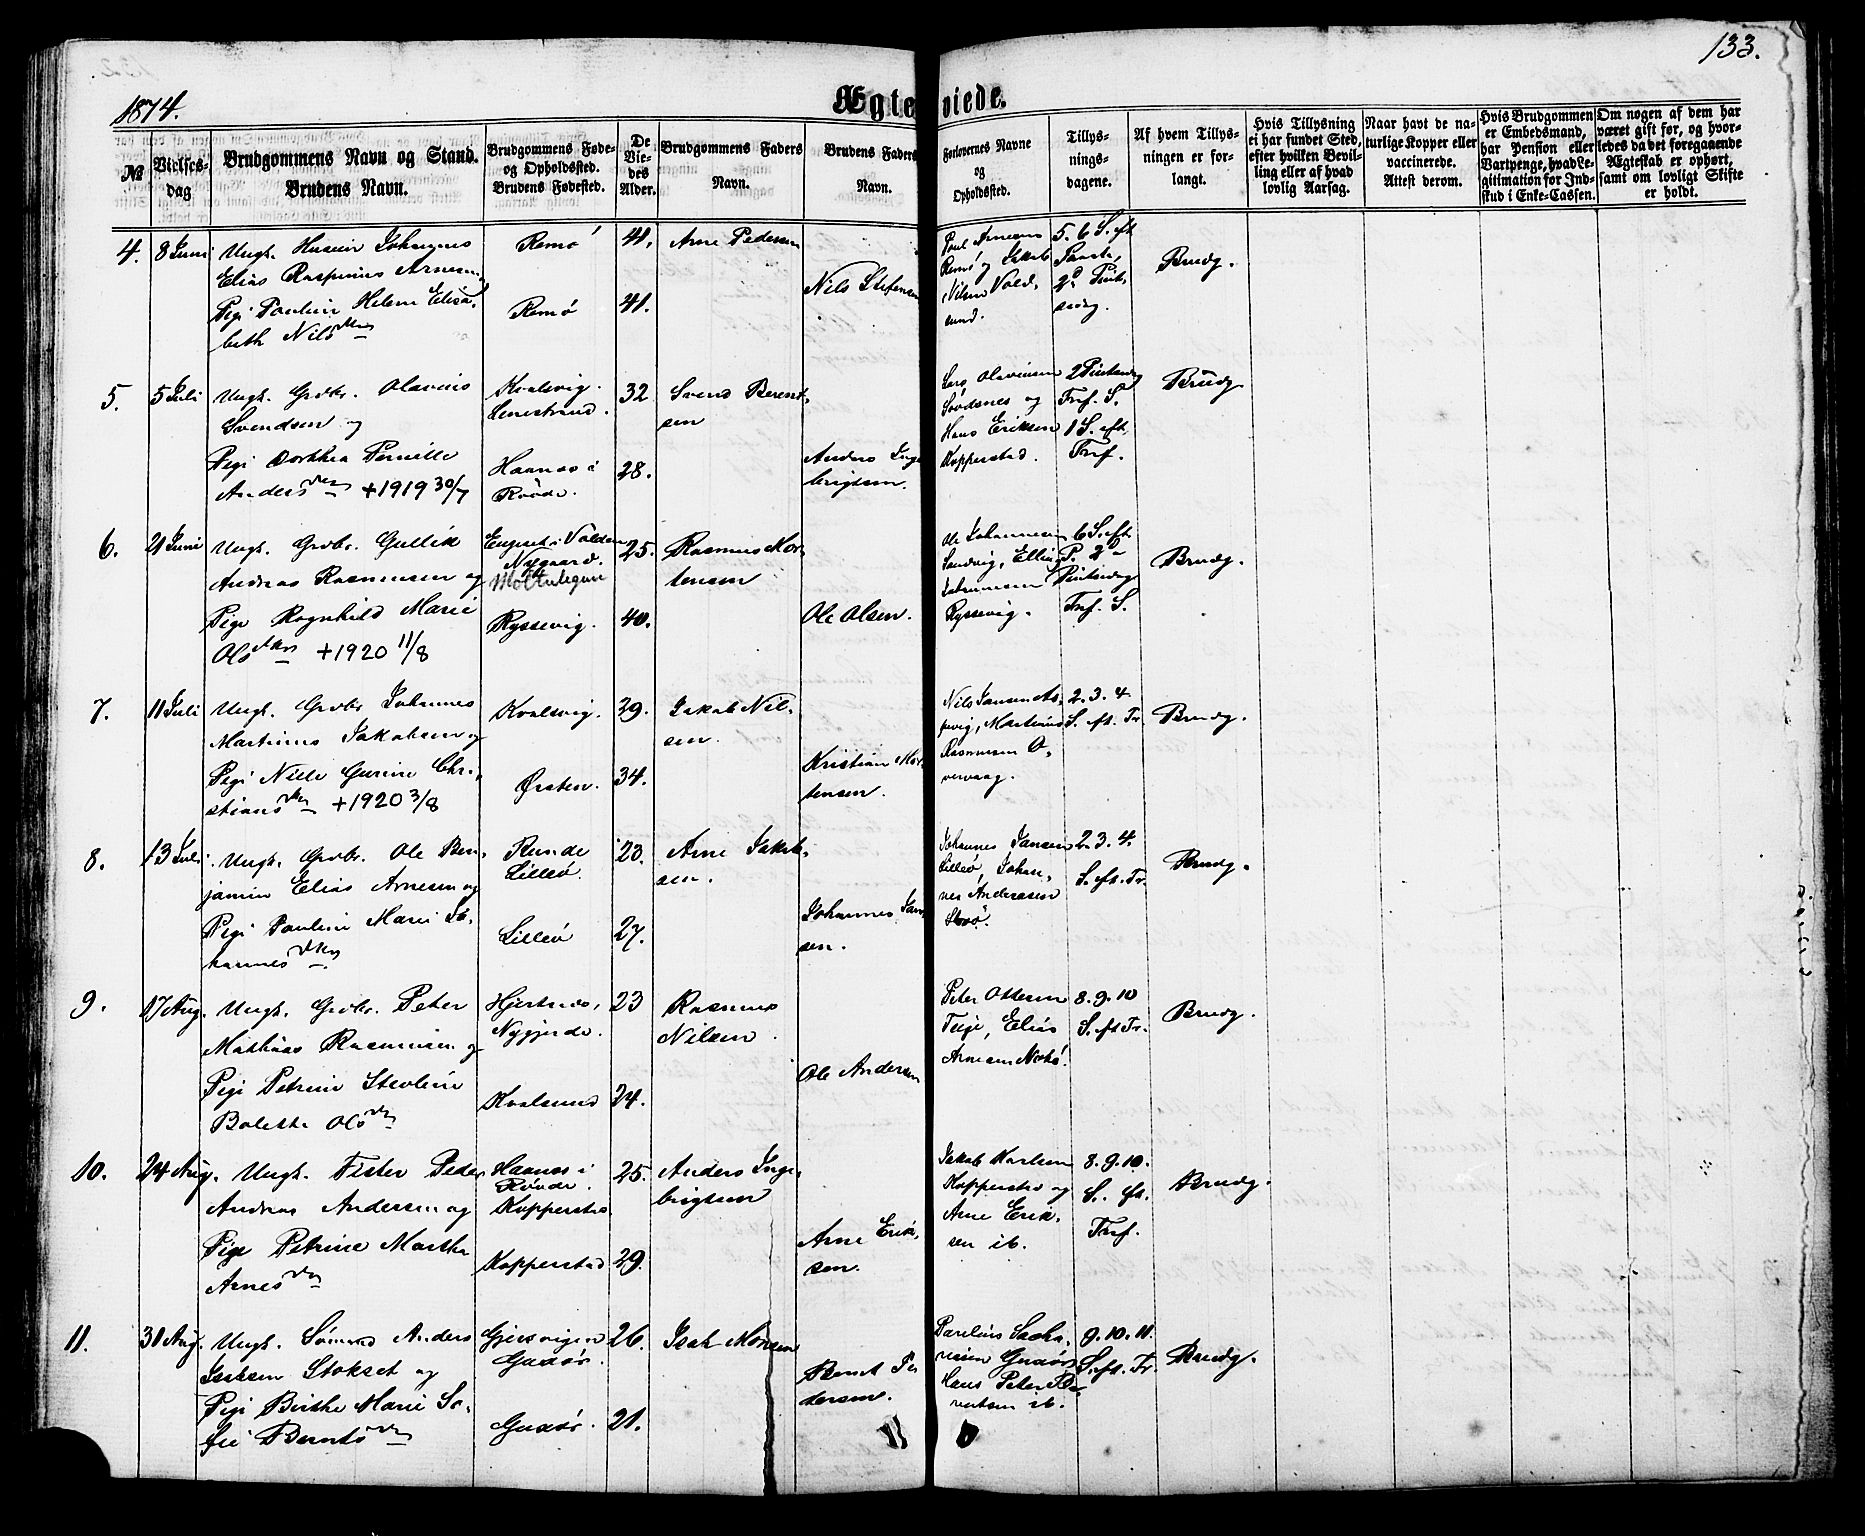 133.
1874.
Ægteviede.
No
Vielses-
dag
Brudgommens Navn og Stand.
Brudens Navn.
Brudgommens Føde-
og Opholdssted.
Brudens Fødested.
De
Vie-
des
Alder.
Brudgommens Faders
Navn.
Brudens Faders
Navn.
Forlovernes Navne
og
Opholdssted.
Tillys-
nings-
dagene.
Af hvem Tillys-
ningen er for-
langt.
Hvis Tillysning
ei har fundet Sted,
efter hvilken Bevil-
ling eller af hvad
lovlig Aarsag.
Naar havt de na-
turlige Kopper eller
vaccinerede.
Attest derom.
Hvis Brudgommen
er Embedsmand,
har Pension eller
Vartpenge, hvad Le-
gitimation for Ind-
skud i Enke-Cassen.
Om nogen af dem har
været gift før, og hvor-
ledes da det foregaaende
Ægteskab er ophørt,
samt om lovligt Skifte
er holdt.
4.
8 Juni
Ungk. Johannes
Elias Arnesen
Pige Pauline Helene Elisa-
beth Nilsdtr
Remø
Remø
41.
41.
Arne Pedersen
Nils Stefensen
Poul Arnesen
Remø og Jakob
Nilsen Vold-
sund.
5. 6 S. eft
Paaske,
2d Pint-
sedag.
Brudg.
5.
5 Juli
Ungk. Grdbr. Olavius
Svendsen og
Pige Dorthea Pernille
Andersdtr +1919 30/7
Kvalsvig.
Lenestrand.
Haanes i
Røvde.
32
28.
Svend Berent-
sen
Anders Inge
brigtsen.
Lars Olavinsen
Sovdsnes og
Hans Eriksen
Kopperstad.
2 Pintsedag
Tref. S.
1 S. eft.
Tref.
Brudg.
6.
21 Juni
Ungk. Grdbr. Gullik
Andreas Rasmussen og
Pige Ragnhild Marie
Olsdtr +1920 11/8
Engeset i Volden
Nygaard.
Moltu
Ryssevig.
25.
40.
Rasmus Mor-
tensen
Ole Olsen.
Ole Johannesen
Sandvig, Elling
Johannesen
Ryssevig.
6 S. eft.
P. 2d
Pintsedag
Tref. S.
Brudg.
7.
11 Juli
Ungk. Grdbr. Johannes
Martinus Jakobsen og
Pige Nille Gurine Chri-
stiansdtr +1920 3/8
Kvalsvig.
Ørsten.
39.
34.
Jakob Nil-
sen.
Kristian Mor-
tensen.
Nils Jansen As-
pevig, Martinus
Rasmussen O-
vervaag.
2. 3. 4.
S. eft. Tr.
Brudg.
8.
13 Juli
Ungk. Grdbr. Ole Ben-
jamin Elias Arnesen og
Pige Pauline Marie Jo-
hannesdtr
Runde
Lilleø.
Lilleø
23.
27.
Arne Jakob-
sen.
Johannes Jan-
sen.
Johannes Jansen
Lilleø, Johan-
nes Anderssen
2. 3. 4.
S. eft. Tr.
Brudg.
9.
17 Aug.
Ungk. Grdbr. Peter
Mathias Rasmussen og
Pige Petrine Stevline
Bolette Olsdtr
Hjertnes,
Nygjerde.
Kvalsund
23
24.
Rasmus
Nilsen
Ole Andersen
Peter Ottesen
Teige, Elias
Arnesen
8. 9. 10
S. eft Tr.
Brudg.
10.
24 Aug.
Ungk. Fisker Peder
Andreas Andersen og
Pige Petrine Marthe
Arnesdtr
Haanes i
Røvde.
Kopperstad
Kopperstad
25.
29.
Anders Inge-
brigtsen
Arne Erik-
sen.
Jakob Karlsen
Kopperstad og
Arne Erik-
sen ib.
8. 9. 10.
S. eft.
Tref.
Brudg.
11.
31 Aug.
Ungk. Anders
Isaksen Stokset og
Pige Birthe Marie So-
fie Berntsdtr
Gjersvigen
Gudør.
Gudør.
26.
21.
Isak Monsen
Bernt Pe
dersen.
Parelius Sacha-
riasen
Hans Peter Be
rentsen ib.
9. 10. 11.
S. eft. Tr.
Brudg.